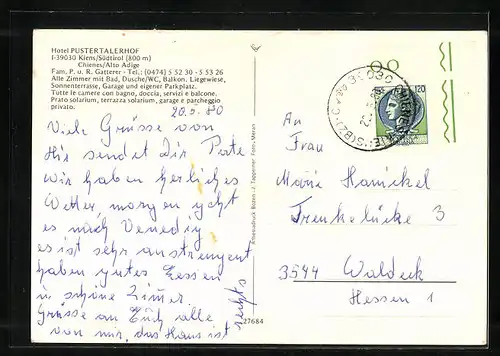 Hotel PUSTERTALERHOF
I-39030 Kiens/Südtirol (800 m)
Chienes/Alto Adige
Fam. P. u. R. Gatterer - Tel.: (0474) 5 52 30 - 5 53 26
Alle Zimmer mit Bad, Dusche/WC, Balkon. Liegewiese,
Sonnenterrasse, Garage und eigener Parkplatz.
Tutte le camere con bagno, doccia, servizi e balcone.
Prato solarium, terrazza solarium, garage e parcheggio
privato.
20.9.80
Viele Grüsse von
Hir sendet Dir Pate
wir haben herliches
Wetter morgen geht
es nach Venedig
es ist sehr anstrengent
haben gutes Essen
in schöne Zimer
Grüsse an Euch alle
von mir, das Haus ist
rechts
Amedeadruck Bozen - J. Tappeiner Foto, Meran
27684
120
An
Frau
Marie Hamickel
Trenkelücke 3
3544 Waldeck
Hessen 1